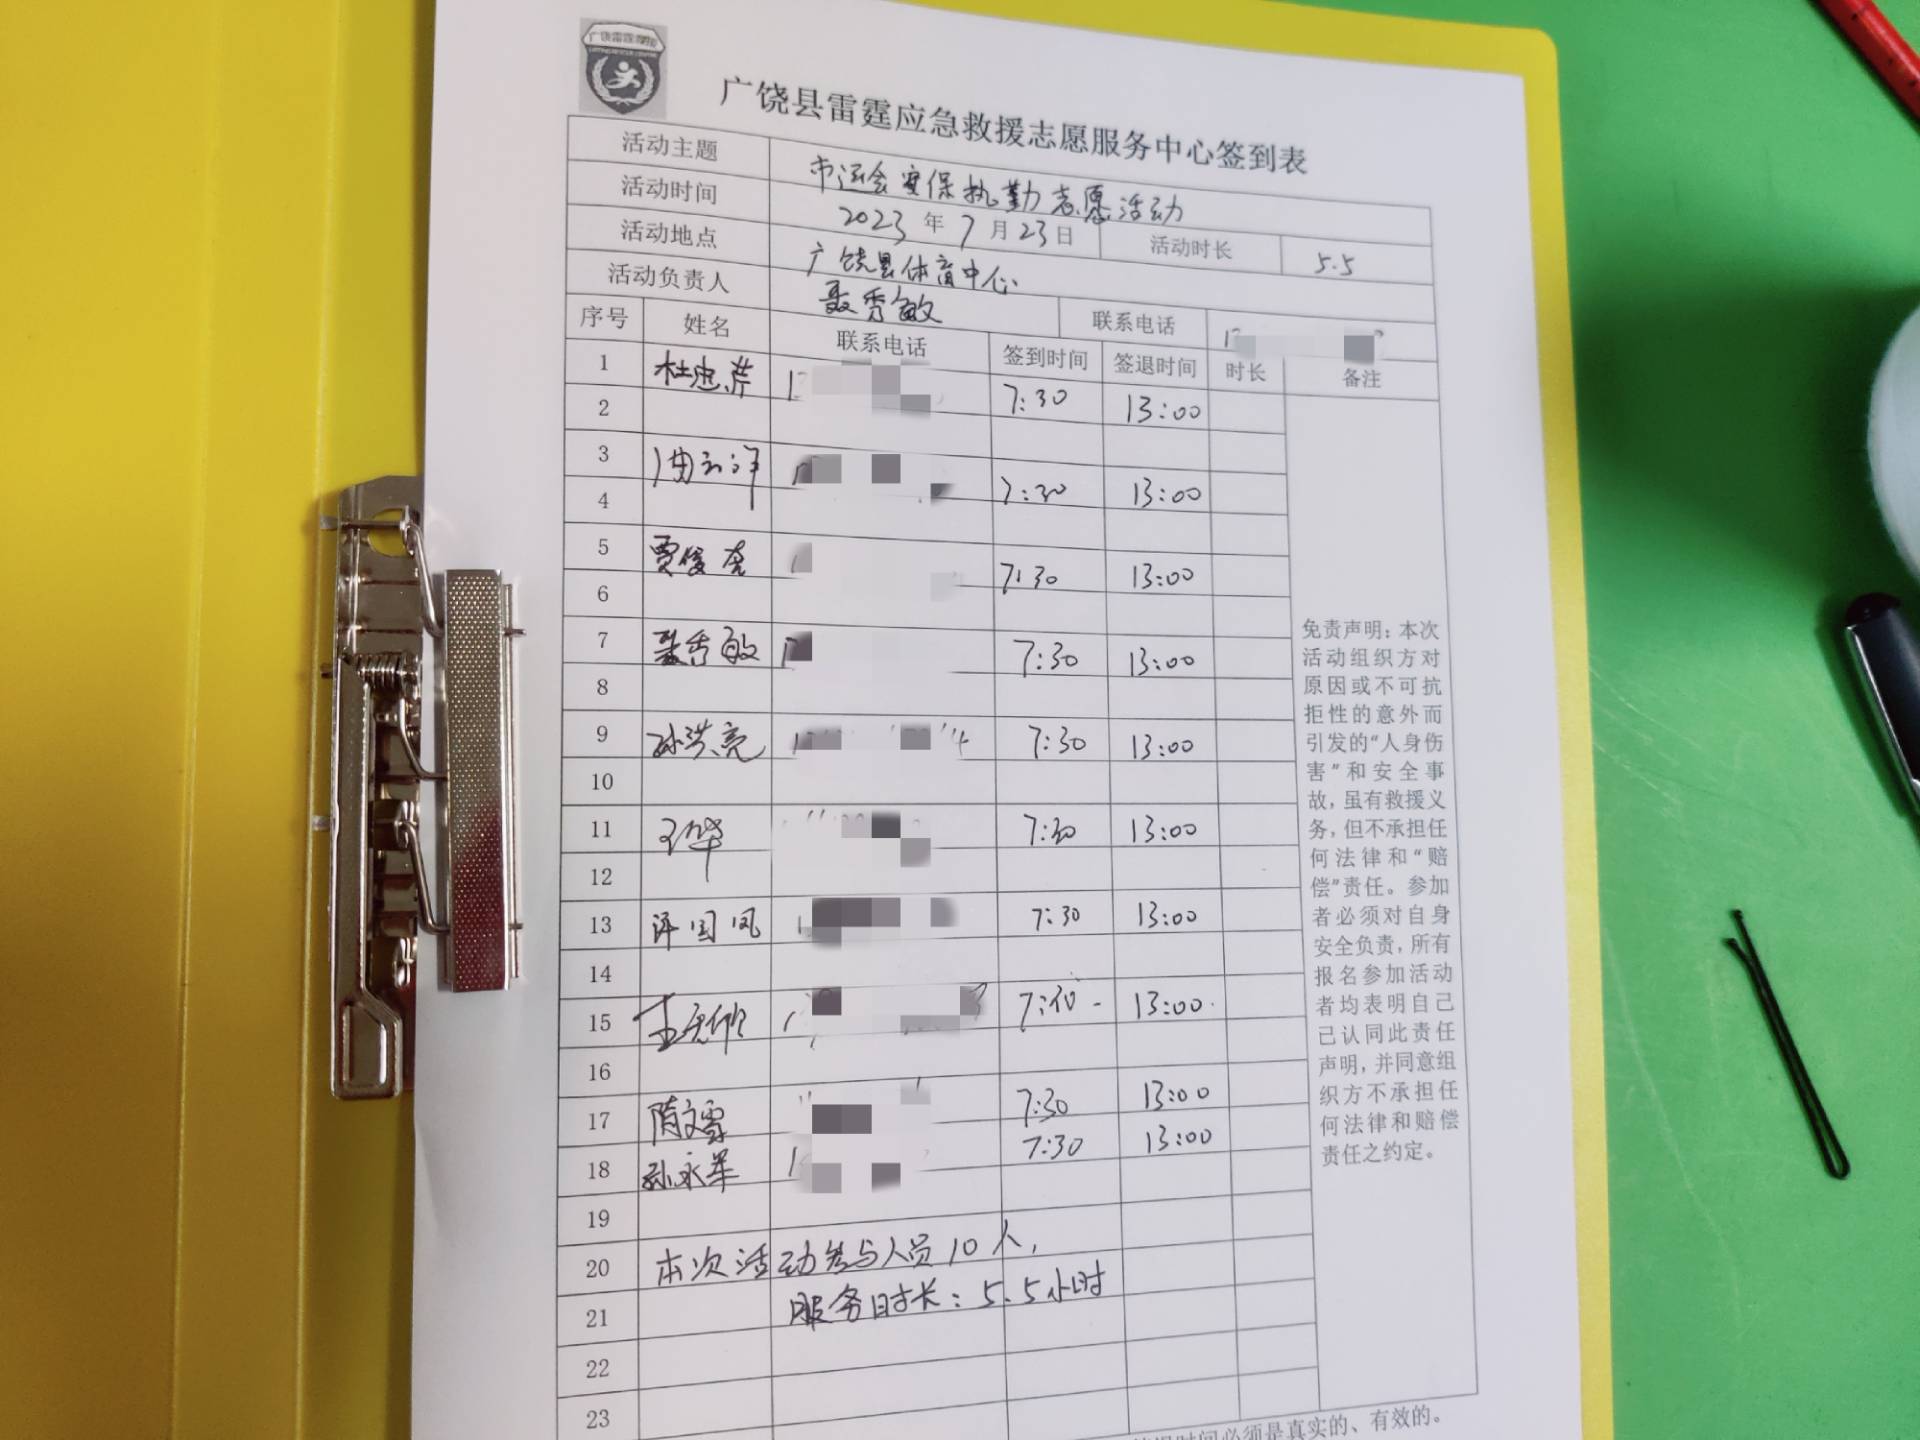 广饶县雷霆应急救援志愿服务中心签到表
活动主题 市运会安保执勤志愿活动
活动时间 2023年7月23日 活动时长 5.5
活动地点 广饶县体育中心
活动负责人 聂秀敏 联系电话
序号 姓名 联系电话 签到时间 签退时间 时长 备注
1 杜忠芹 7:30 13:00
2
3 7:30 13:00
4
5 贾俊虎 7:30 13:00
6
7 聂秀敏 7:30 13:00
8
9 孙洪亮 7:30 13:00
10
11 王华 7:30 13:00
12
13 国凤 7:30 13:00
14
15 7:30 13:00
16
17 隋文霞 7:30 13:00
18 孙永军 7:30 13:00
19
20 本次活动参与人员10人,
21 服务时长:5.5小时
22
23
免责声明:本次
活动组织方对
原因或不可抗
拒性的意外而
引发的“人身伤
害”和安全事
故,虽有救援义
务,但不承担任
何法律和“赔
偿”责任。参加
者必须对自身
安全负责,所有
报名参加活动
者均表明自己
已认同此责任
声明,并同意组
织方不承担任
何法律和赔偿
责任之约定。
时间必须是真实的、有效的。